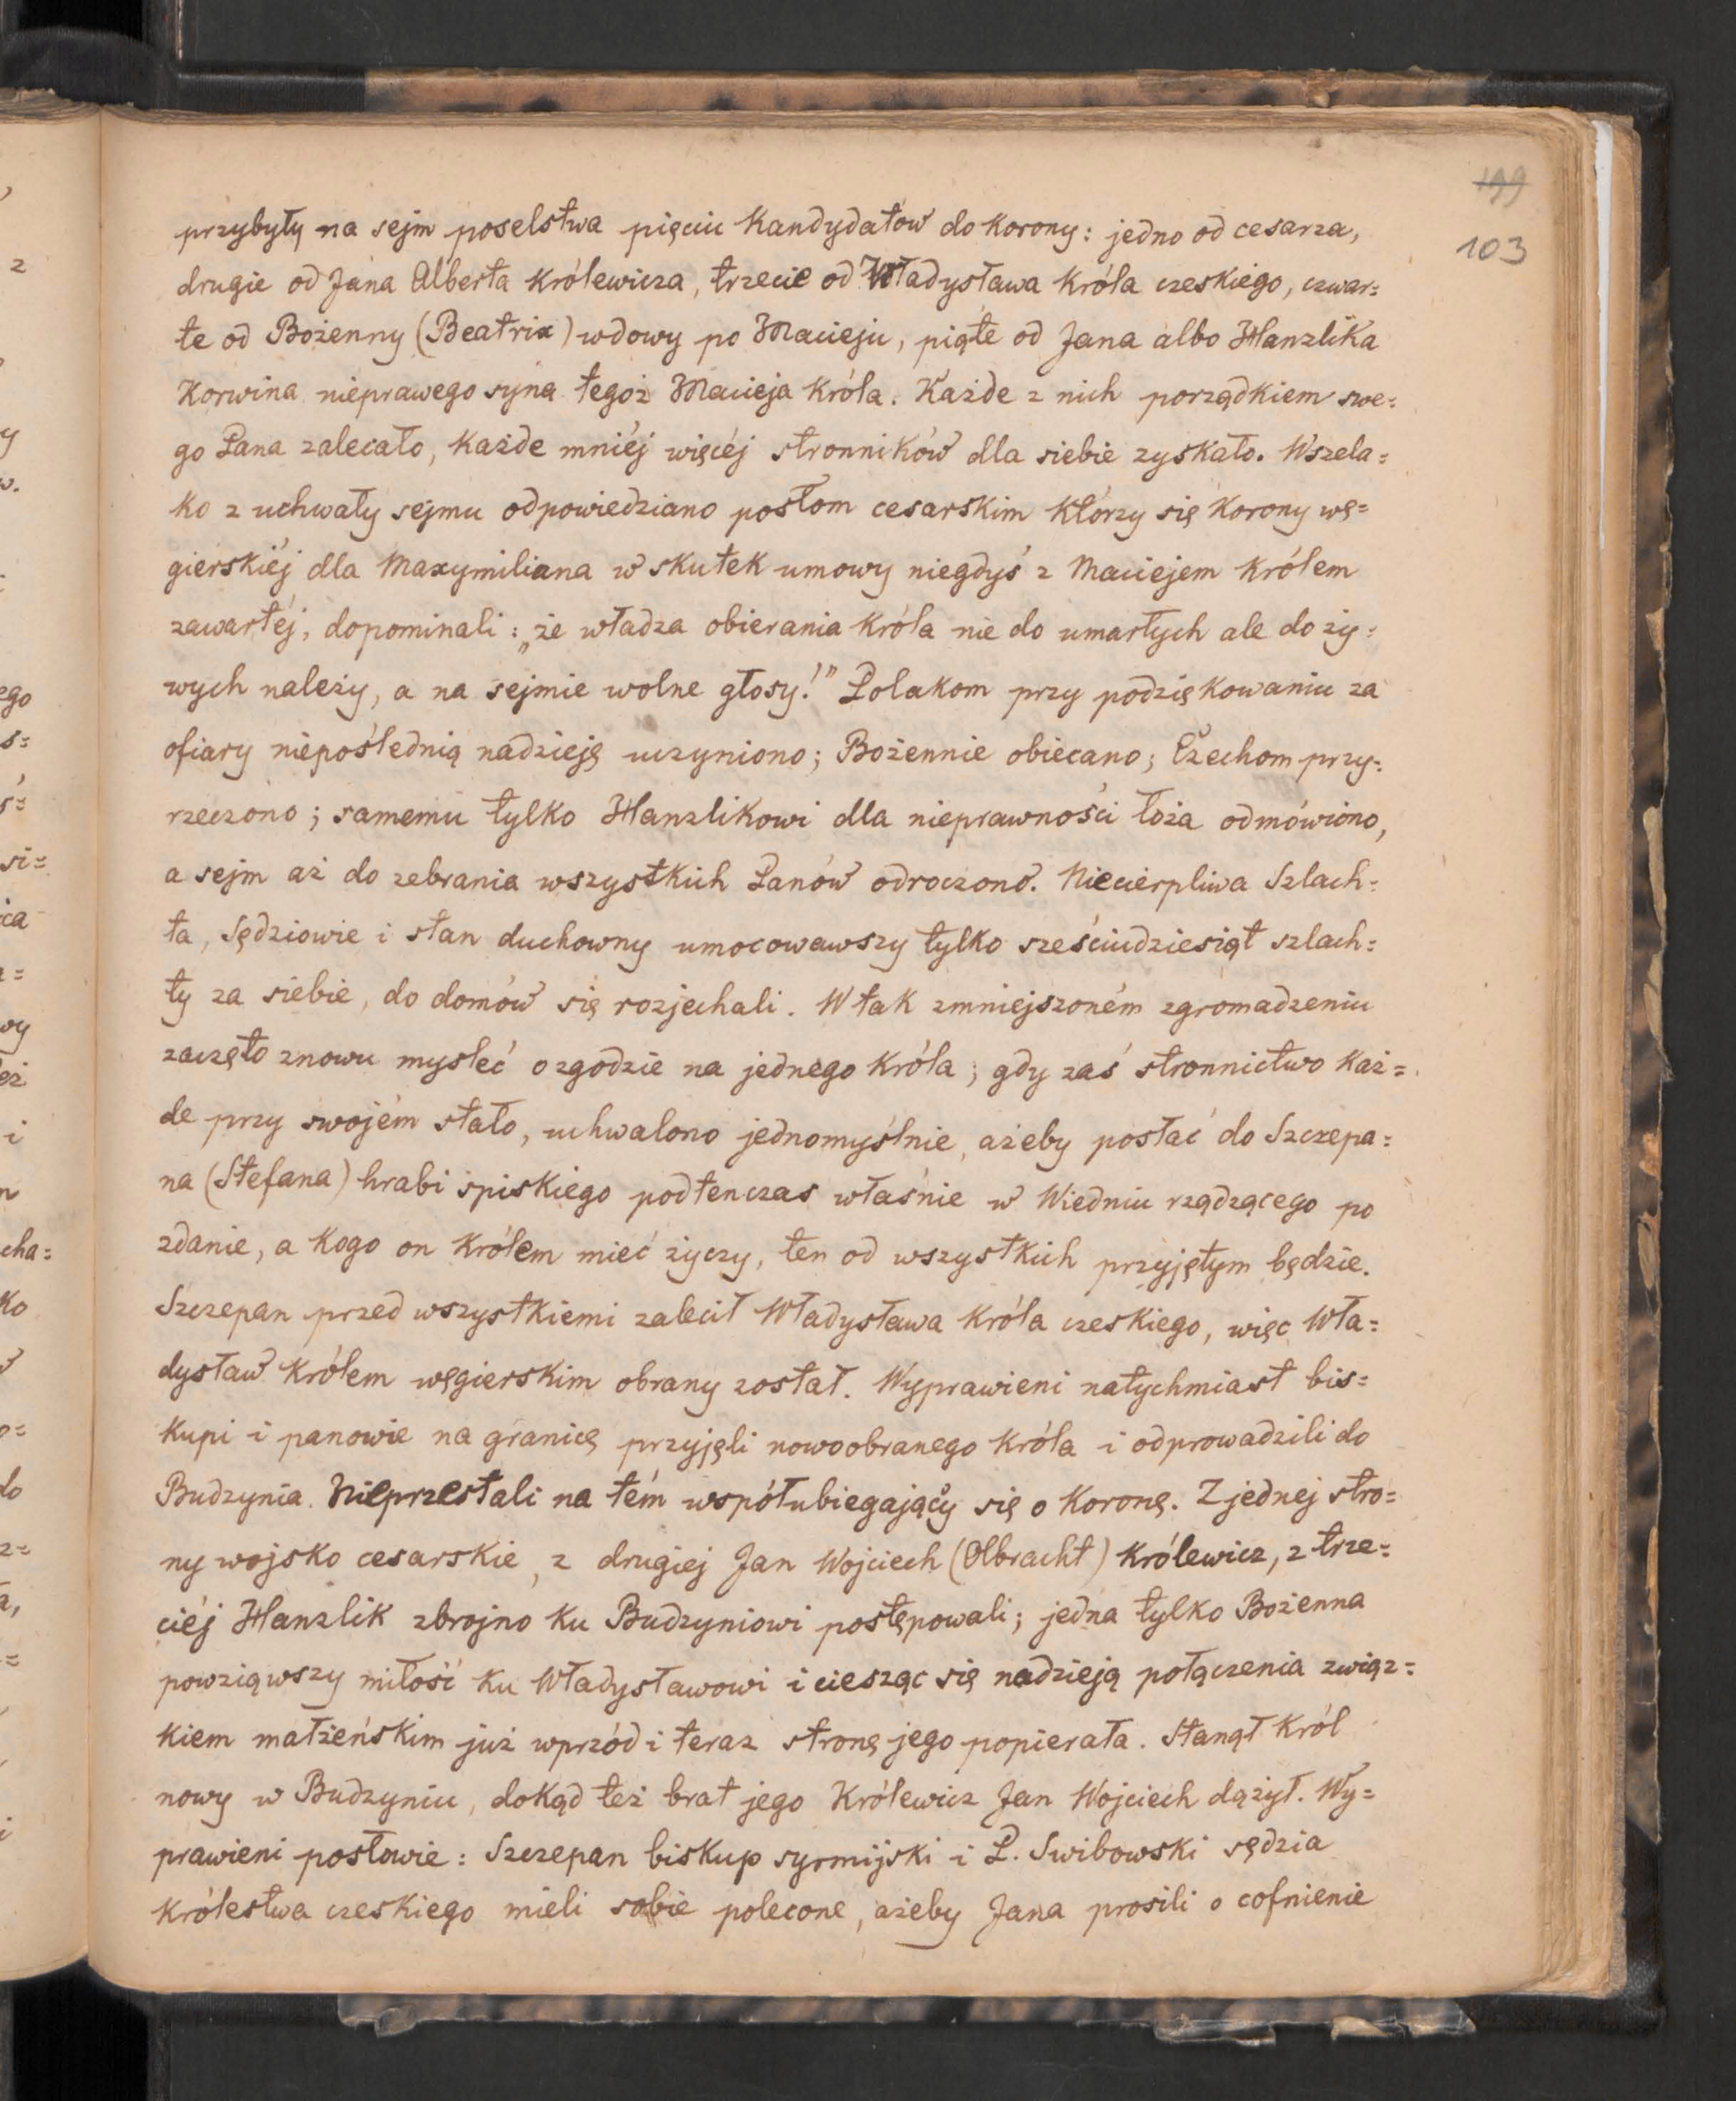 199
103
przybyły na sejm poselstwa pięciu Kandydatów do Korony: jedno od cesarza,
drugie od Jana Alberta Królewicza, trzecie od Władysława Króla czeskiego, czwar=
te od Bożenny (Beatrix) wdowy po Macieju, piąte od Jana albo Hanzlika
Korwina nieprawego syna tegoż Macieja Króla. Każde z nich porządkiem swe=
go Pana zalecało, Każde mniéj więcéj stronników dla siebie zyskało. Wszela=
ko z uchwały sejmu odpowiedziano posłom cesarskim Którzy się Korony wę=
gierskiéj dla Maxymiliana w skutek umowy niegdyś z Maciejem Królem
zawartéj, dopominali: „że władza obierania Króla nie do umarłych ale do ży=
wych należy, a na sejmie wolne głosy!” Polakom przy podziękowaniu za
ofiary niepoślednią nadzieję uczyniono; Bożennie obiecano; Czechom przy=
rzeczono; samemu tylko Hanzlikowi dla nieprawności łoża odmówiono,
a sejm aż do zebrania wszystkich Panów odroczono. Niecierpliwa Szlach=
ta, Sędziowie i stan duchowny umocowawszy tylko sześciudziesiąt szlach=
ty za siebie, do domów się rozjechali. W tak zmniejszoném zgromadzeniu
zaczęto znowu mysleć o zgodzie na jednego Króla; gdy zaś stronnictwo Każ=
de przy swojém stało, uchwalono jednomyślnie, ażeby posłać do Szczepa=
na (Stefana) hrabi spiskiego podtenczas właśnie w Wiedniu rządzącego po
zdanie, a Kogo on Królem mieć życzy, ten od wszystkich przyjętym będzie.
Szczepan przed wszystkiemi zalecił Władysława Króla czeskiego, więc Wła=
dysław Królem węgierskim obrany został. Wyprawieni natychmiast bis=
kupi i panowie na granicę przyjęli nowoobranego Króla i odprowadzili do
Budzynia. Nieprzestali na tém współubiegający się o Koronę. Z jednej stro=
ny wojsko cesarskie, z drugiej Jan Wojciech (Olbracht) Królewicz, z trze=
ciéj Hanzlik zbrojno Ku Budzyniowi postępowali; jedna tylko Bożenna
powziąwszy miłość Ku Władysławowi i ciesząc się nadzieją połączenia związ=
kiem małżeńskim już wprzód i teraz stronę jego popierała. Stanął Król
nowy w Budzyniu, dokąd też brat jego Królewicz Jan Wojciech dążył. Wy=
prawieni posłowie: Szczepan biskup syrmijski i P. Swibowski sędzia
Królestwa czeskiego mieli sobie polecone, ażeby Jana prosili o cofnienie